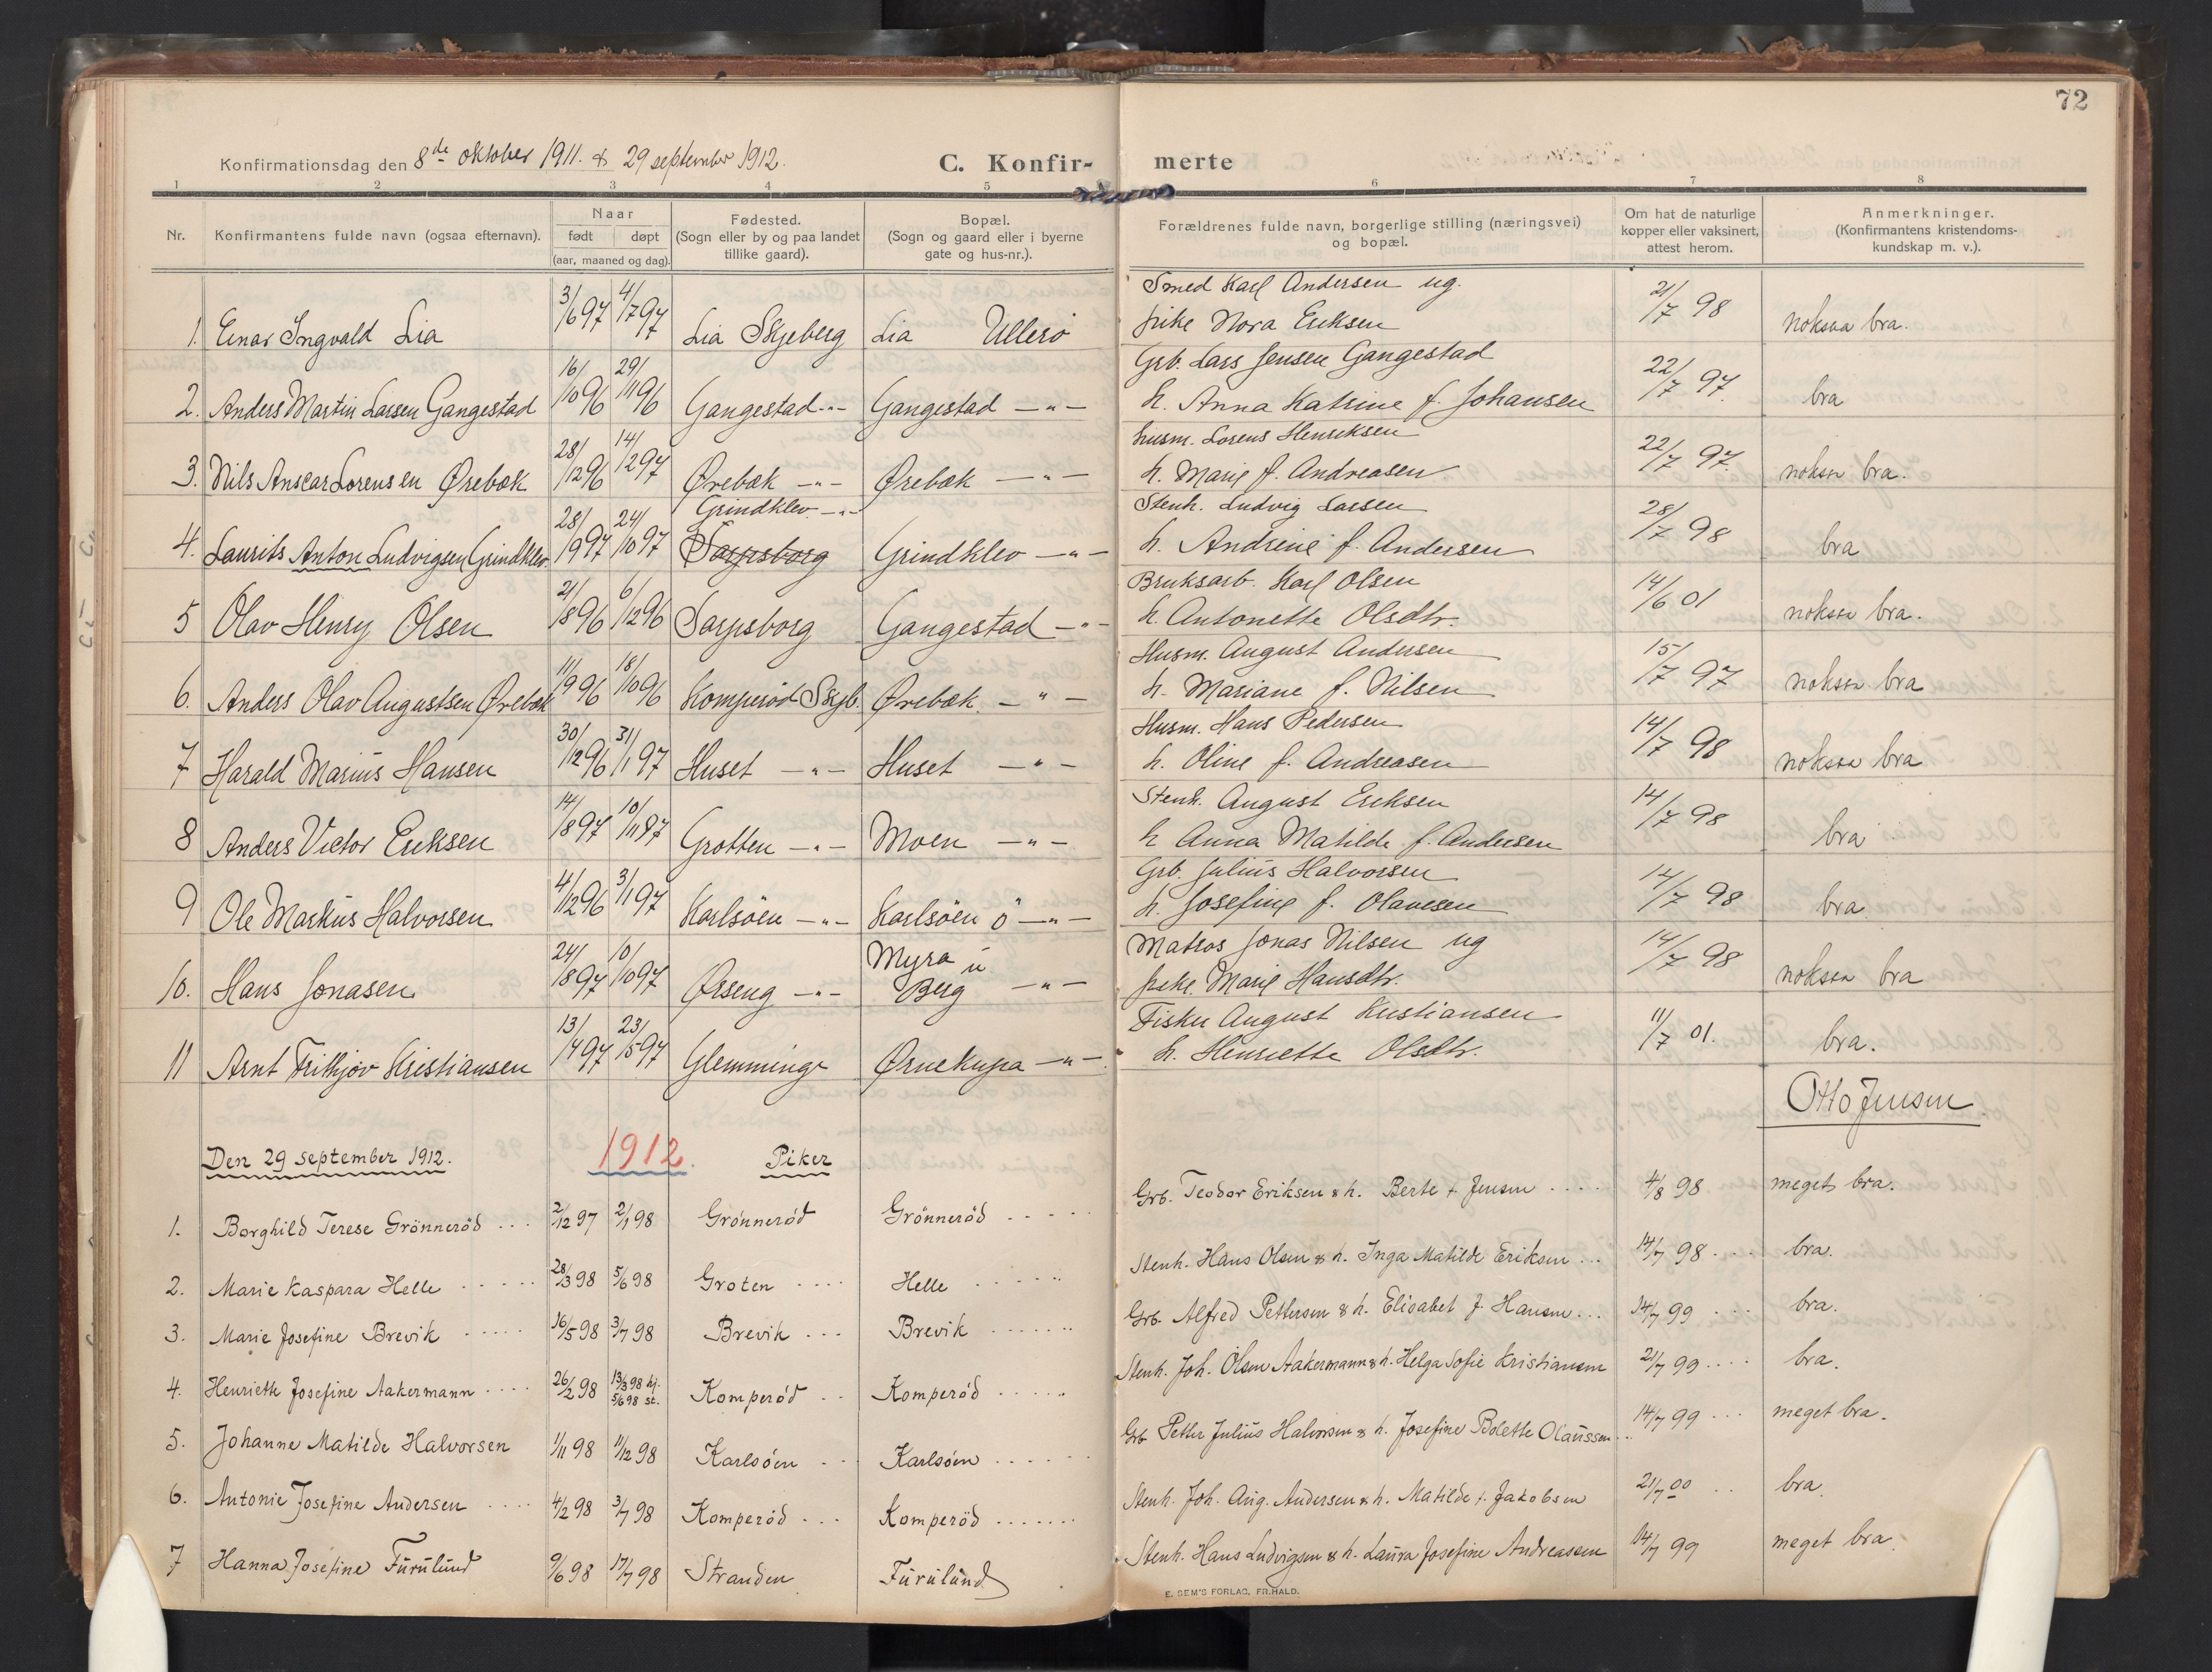 72
Konfirmationsdag den 8de oktober 1911. & 29 september 1912.
C. Konfir- merte
1 2 3 4 5 6 7 8
Nr. | Konfirmantens fulde navn (ogsaa efternavn). | Naar født døpt (aar, maaned og dag). | Fødested. (Sogn eller by og paa landet tillike gaard). | Bopæl. (Sogn og gaard eller i byerne gate og hus-nr.). | Forældrenes fulde navn, borgerlige stilling (næringsvei) og bopæl. | Om hat de naturlige kopper eller vaksinert, attest herom. | Anmerkninger. (Konfirmantens kristendoms-kundskap m. v.).
1. Einar Ingvald Lia 3/6 97 4/7 97 Lia Skjeberg Lia Ullerø Smed Karl Andersen ug. pike Nora Eriksen 21/7 98 noksaa bra.
2. Anders Martin Larsen Gangestad 16/10 96 29/11 96 Gangestad -"- Gangestad -"- Grb. Lars Jensen Gangestad h. Anna Katrine f. Johansen 22/7 97. bra
3. Nils Anscar Lorensen Ørebæk 28/12 96 14/2 97 Ørebæk -"- Ørebæk -"- husm. Lorens Henriksen h. Marie f. Andreasen 22/7 97. noksaa bra.
4. Laurits Anton Ludvigsen Grindklev 28/9 97 24/10 97 Grindklev -"- Sarpsborg Grindklev -"- Stenh. Ludvig Larsen h. Andrine f. Andersen 28/7 98 bra
5 Olav Henry Olsen 21/8 96 6/12 96 Sarpsborg Gangestad -"- Bruksarb. Karl Olsen h. Antonette Olsdtr. 14/6 01 noksaa bra.
6. Anders Olav Augustsen Ørebæk 11/9 96 18/10 96 Komperød Skjb. Ørebæk -"- Husm. August Andersen h. Mariane f. Nilsen 15/7 97 noksaa bra
7 Harald Marius Hansen 30/12 96 31/1 97 Huset -"- Huset -"- Husm. Hans Pedersen h. Oline f. Andreasen 14/7 98 noksaa bra
8 Anders Victor Eriksen 14/8 97 10/11 97 Grotten -"- Moen -"- Stenh. August Eriksen h Anna Matilde f. Andersen 14/7 98 bra
9 Ole Markus Halvorsen 4/12 96 3/1 97 Karlsöen -"- Karlsöen ö -"- Grb. Julius Halvorsen h. Josefine f. Olavesen 14/7 98 bra
10. Hans Jonasen 24/8 97 10/10 97 Ørseng -"- Myra u Berg -"- Matros Jonas Nilsen ug pike Marie Hansdtr. 14/7 98 noksaa bra
11 Arnt Frithjov Kristiansen 13/4 97 23/5 97 Glemminge Ørnekupa -"- Fisker August Kristiansen h. Henriette Olsdtr. 11/7 01. bra.
Otto Jensen
Den 29 september 1912. 1912. Piker
1. Borghild Terese Grönneröd ... 2/12 97 2/1 98 Grönneröd Grönneröd ..... Grb. Teodor Eriksen & h. Berte f Jensen .... 4/8 98 meget bra.
2. Marie Kaspara Helle ..... 28/3 98 5/6 98 Groten .... Helle ...... Stenh. Hans Olsen & h. Inga Matilde Eriksen ... 14/7 98 ... bra.
3. Marie Josefine Brevik ..... 16/5 98 3/7 98 Brevik ... Brevik ...... Grb. Alfred Pettersen & h. Elisabet f. Hansen ... 14/7 99 ... bra.
4. Henriette Josefine Aakermann .... 26/2 98 13/3 98 hj. 5/6 98 st. Komperöd .. Komperöd ..... Stenh. Joh. Olsen Aakermann & h. Helga Sofie Kristiansen 21/7 99 .... bra.
5. Johanne Matilde Halvorsen 1/11 98 11/12 98 Karlsöen .. Karlsöen ..... Grb Petter Julius Halvorsen & h. Josefine Bolette Olaussen .. 14/7 99 ... meget bra.
6. Antonie Josefine Andersen .... 4/2 98 3/7 98 Komperöd ... Komperöd ....... Stenh. Joh. Aug. Andersen & h. Matilde f. Jakobsen 21/7 00 .. bra.
7 Hanna Josefine Furulund 9/6 98 17/7 98 Stranden Furulund Stenh. Hans Ludvigsen & h. Laura Josefine Andreassen 14/7 99 meget bra.
E. SEM'S FORLAG, FR.HALD.